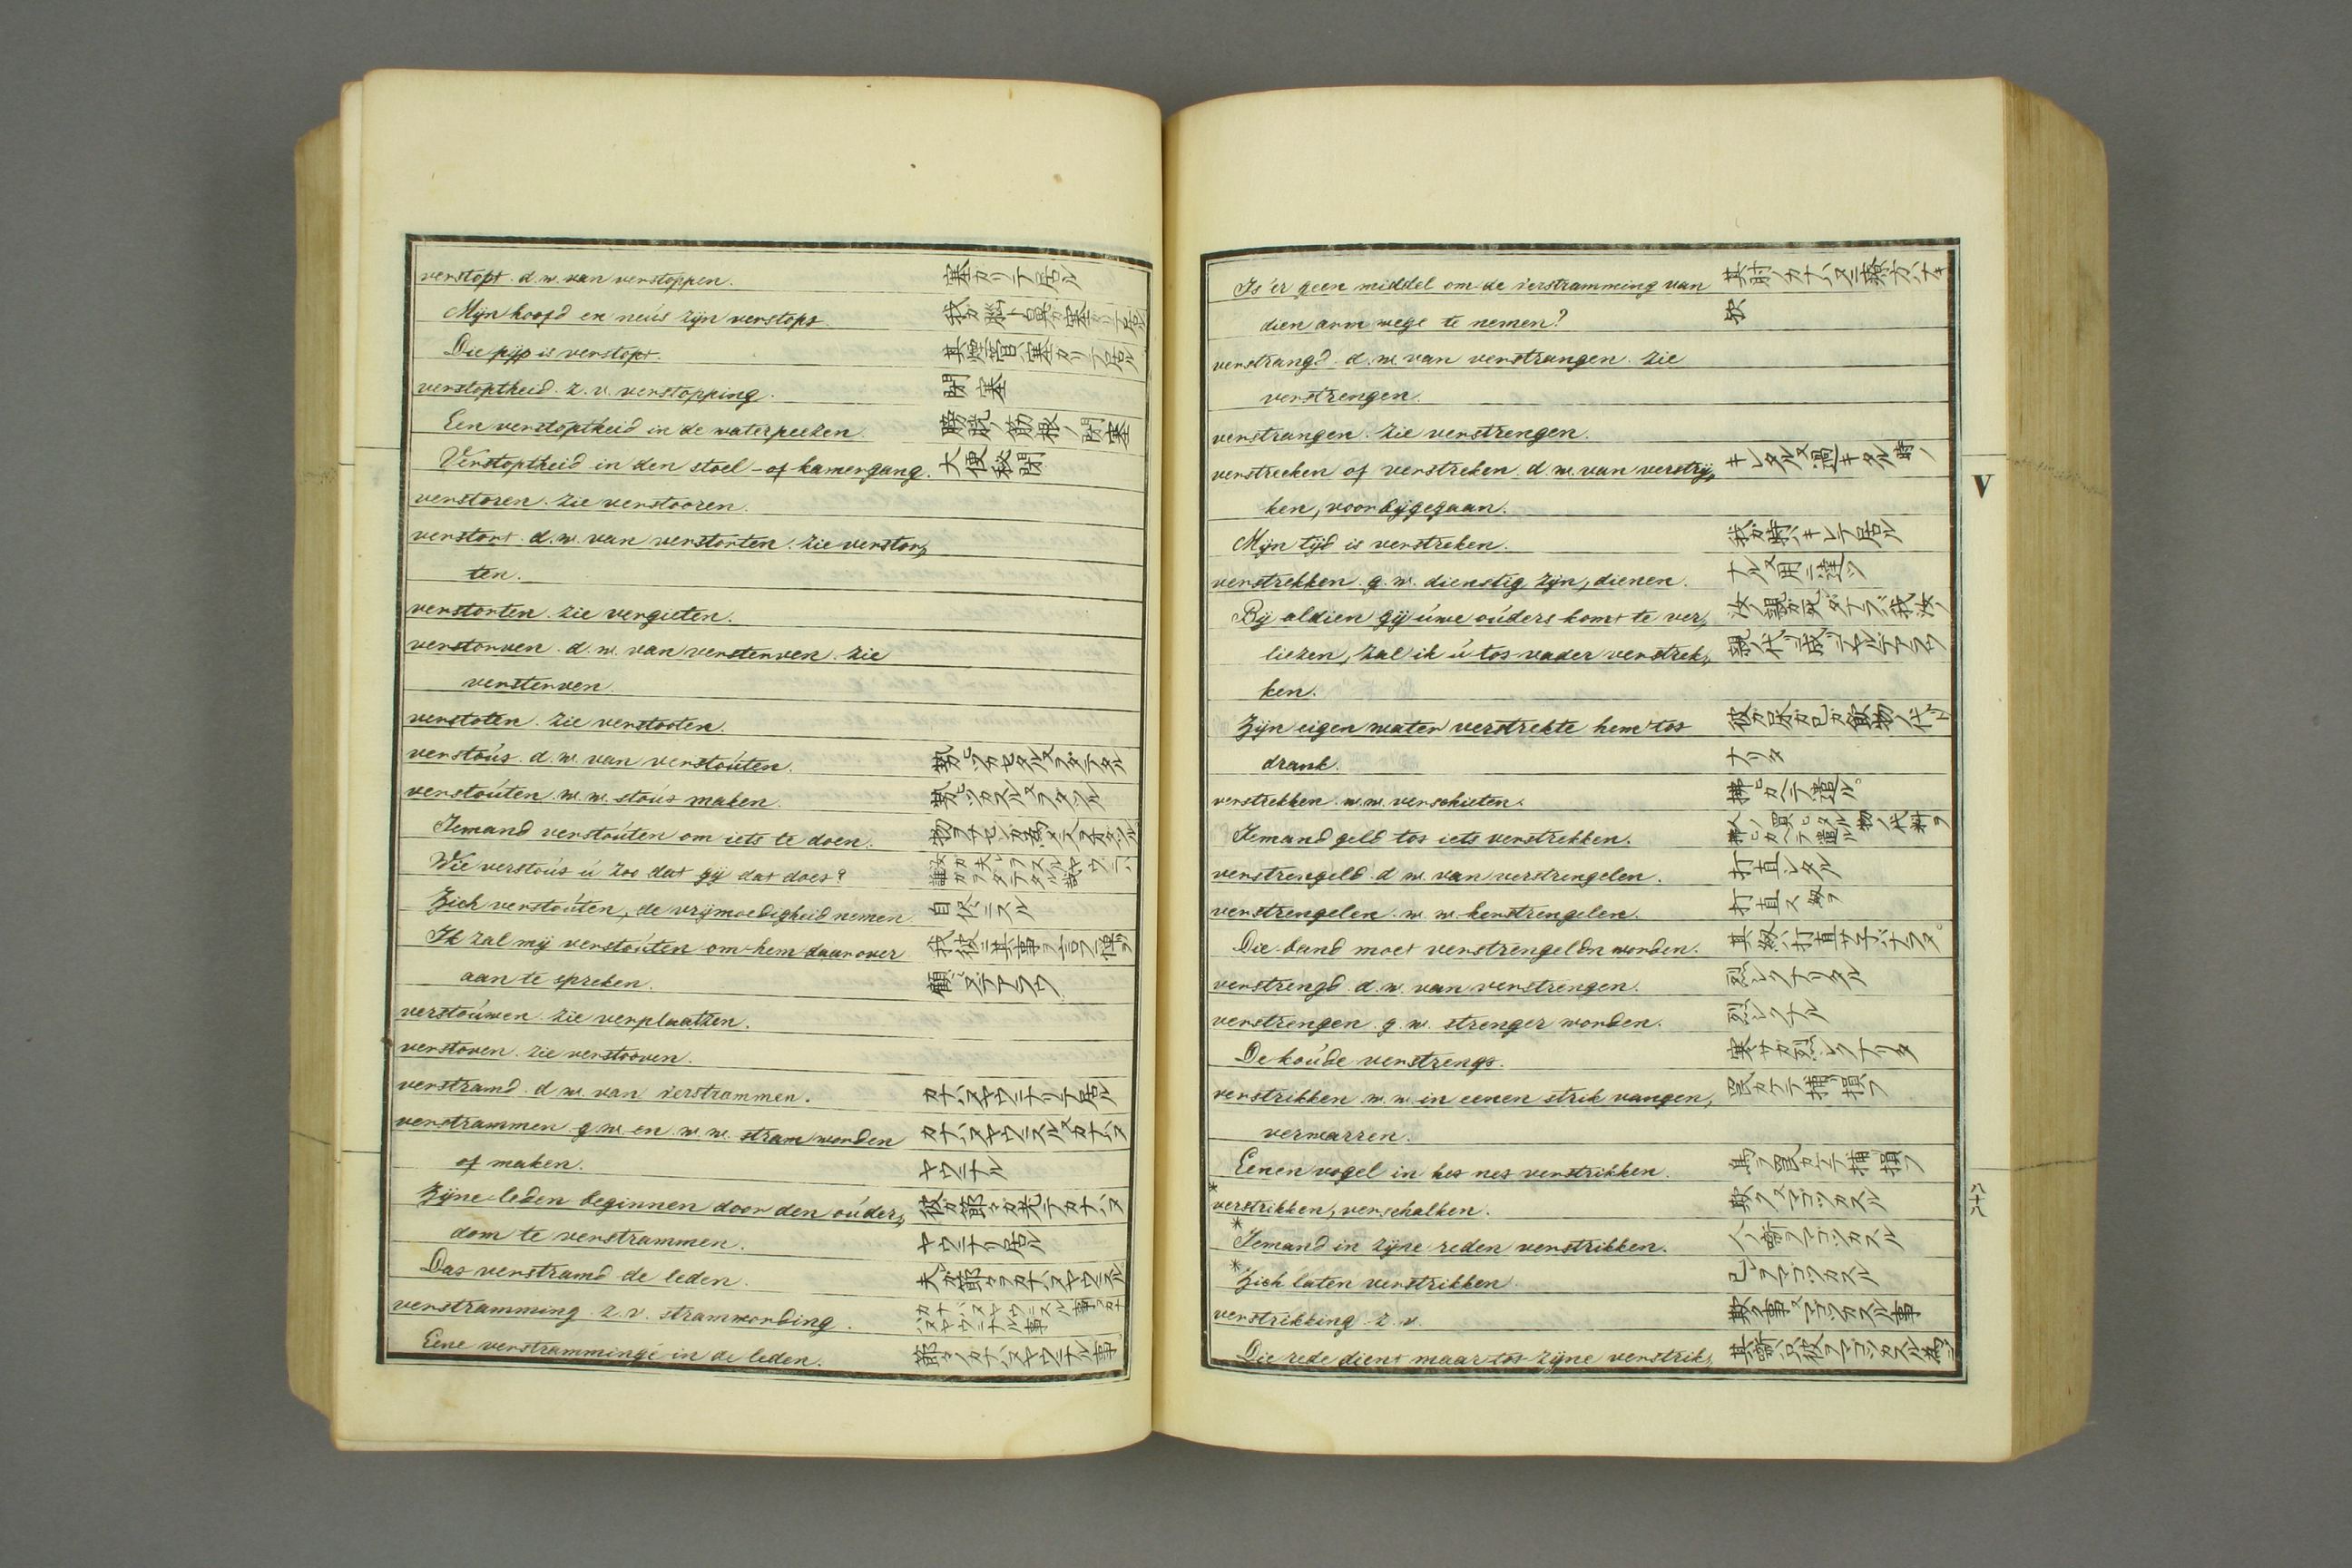 verstopt. d. w. van verstoppen. 塞カリテ居ル
Mijn hoofd en neús zijn verstopt. 我ガ脳ト鼻ガ塞カリテ居ル
Die pijp is verstopt. 其煙管ハ塞カリテ居ル
verstoptheid. z. v. verstopping. 閉塞
Een verstoptheid in de waterpeezen. 閉塞
Verstoptheid in den stoel- of kamergang. 大便秘閉
verstoren. zie verstooren.
verstort. d. w. van verstorten. zie verstor„
ten.
verstorten. zie vergieten.
verstorven. d. w. van versterven. zie
versterven.
verstoten. zie verstooten.
verstoút. d. w. van verstoúten.
verstoúten. w. w. stoút maken.
Iemand verstoúten om iets te doen.
Wie verstoút ú zoo dat gij dat doet?
Zich verstoúten, de vrijmoedigheid nemen
Ik zal mij verstoúten om hem daarover 我彼ニ其事ヲ言フ
aan te spreken.
verstoúwen. zie verplaatzen.
verstoven. zie verstooven.
verstramd. d. w. van verstrammen. カナハヌヤウニナリテ居ル
verstrammen. g. w. en w. w. stram worden カナハヌヤウニスル又カナハヌ
of maken. ヤウニナル
Zijne leden beginnen door den oúder„ 彼ガ節々ガ老テカナハヌ
dom te verstrammen. ヤウニナリ居ル
Dat verstramd de leden. 夫ガ節々ヲカナハヌヤウニスル
verstramming. z. v. stramwording. カナハヌヤウニスル事又カナハヌヤウニナル事
Eene verstramminge in de leden. 節々ノカナハヌヤウニナル事
Is 'er geen middel om de verstramming van
dien arm wege te nemen? 歟
verstrangd. d. w. van verstrangen. zie
verstrengen.
verstrangen. zie verstrengen.
verstrecken of verstreken. d. w. van verstrij„ キレタル又過キタル時ノ
ken, voorbijgegaan.
Mijn tijd is verstreken. 我ガ時ハキレテ居ル
verstrekken. g. w. dienstig zijn, dienen. ナル又用ニ達ツ
Bij aldien gij úwe oúders komt te ver„
liezen, zal ik ú tot vader verstrek„
ken.
Zijn eigen water verstrekte hem tot 彼ガ尿ガ己ガ飲物ノ代リト
drank. ナリタ
verstrekken. w. w. verschieten. 拂ヒカヘテ遣ル
Iemand geld tot iets verstrekken. 人ノ買ヒタル物ノ代料ヲ拂ヒカヘテ遣ル
verstrengeld. d. w. van verstrengelen. 打直シタル
verstrengelen. w. w. herstrengelen. 打直ス
Die band moet verstrengeldn worden.
verstrengd. d. w. van verstrengen. 烈シクナリタル
verstrengen. g. w. strenger worden. 烈シクナル
De koúde verstrengt. 寒サガ烈シクナリタ
verstrikken. w. w. in eenen strik vangen,
verwarren.
Eenen vogel in het net verstrikken.
*verstrikken, verschalken. 欺ク又マゴツカスル
*Iemand in zijne reden verstrikken. 人ノ辞ヲマゴツカスル
*Zich laten verstrikken. 己レヲマゴツカスル
verstrikking. z. v. 欺ク事又マゴツカスル事
Die rede dient maar tot zijne verstrik„
V
八十八